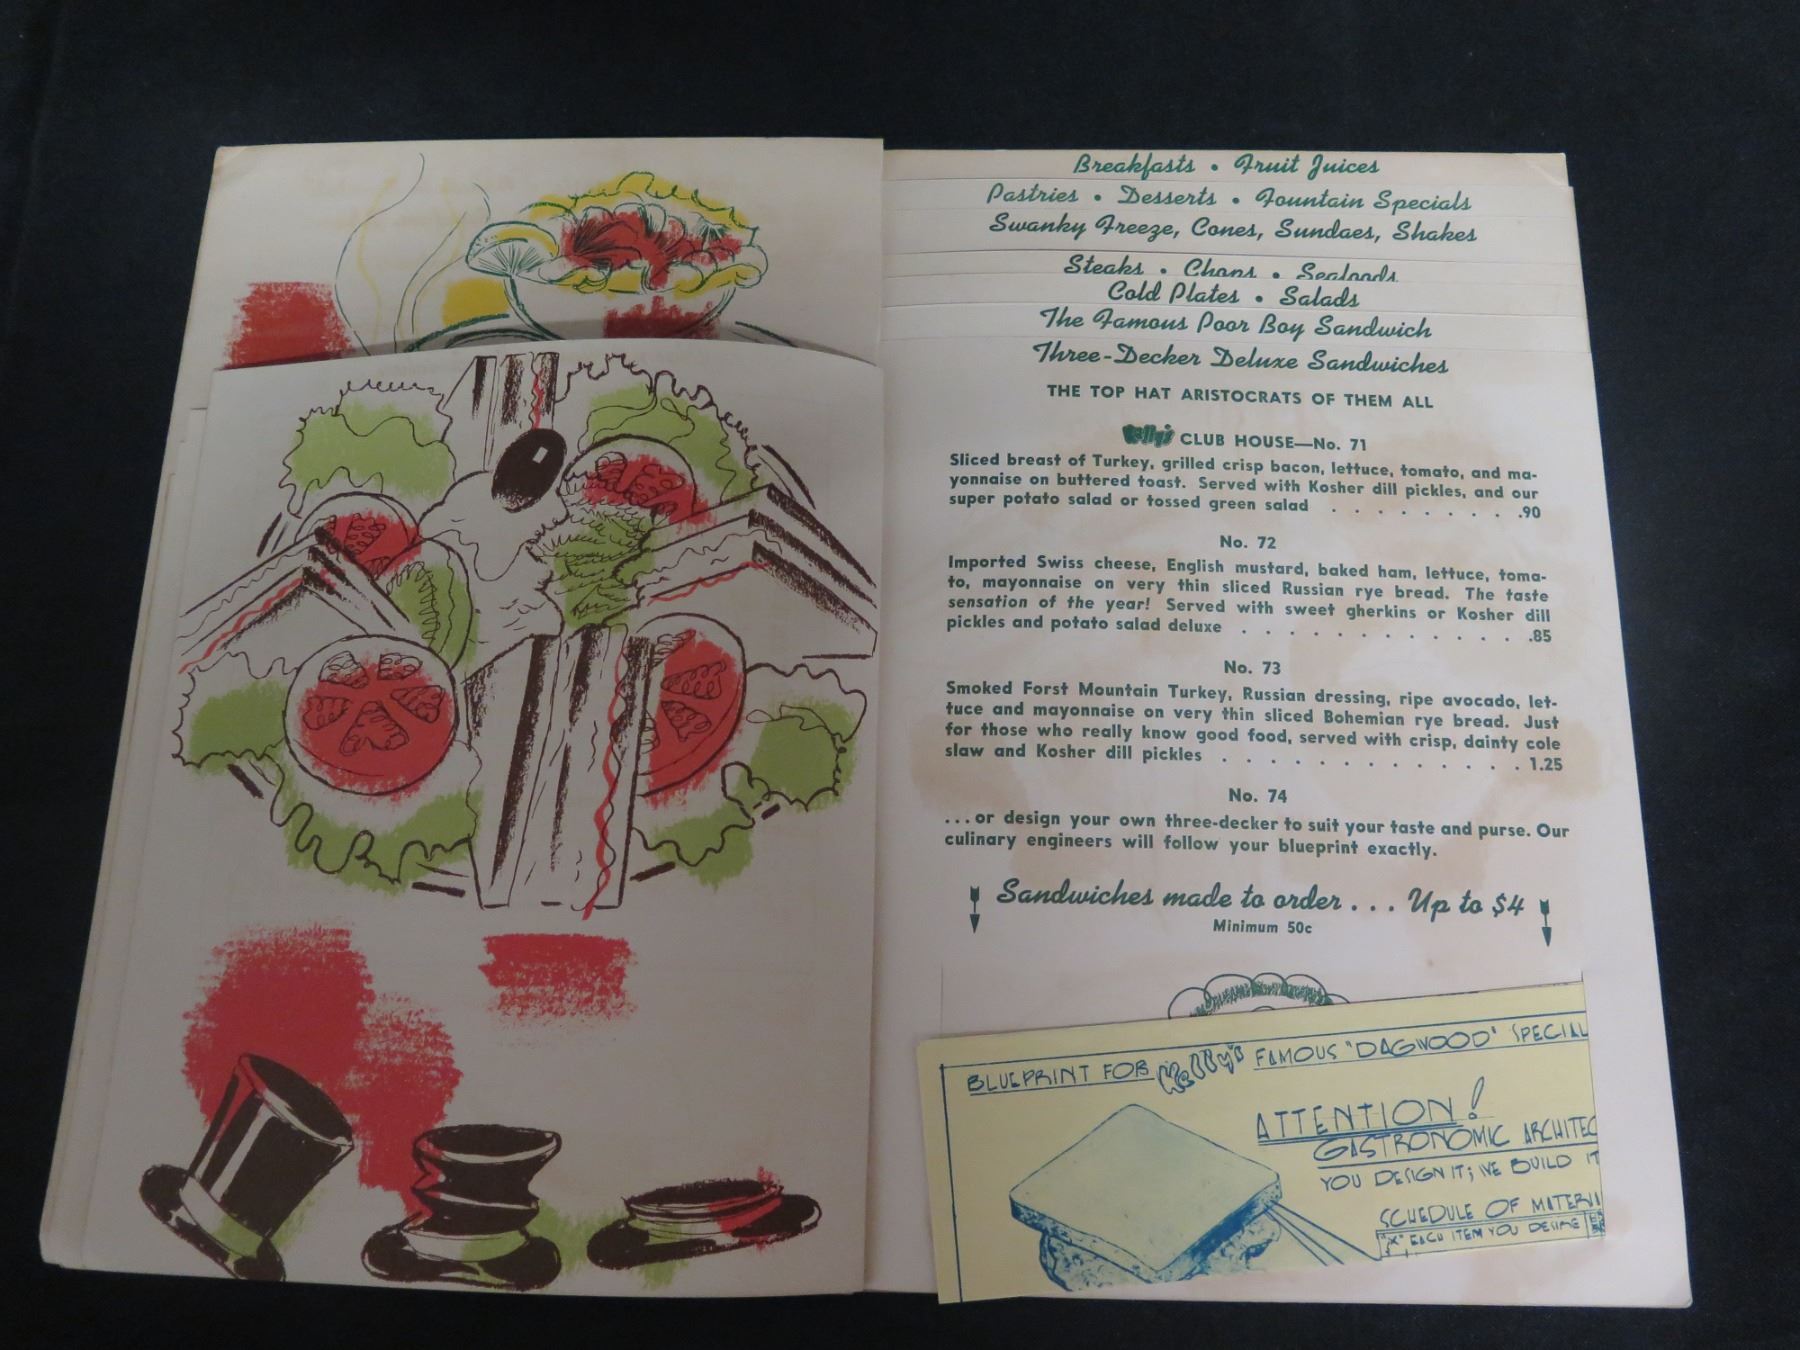 Breakfasts • Fruit Juices
Pastries • Desserts • Fountain Specials
Swanky Freeze, Cones, Sundaes, Shakes
Steaks • Chops • Seafoods
Cold Plates • Salads
The Famous Poor Boy Sandwich
Three-Decker Deluxe Sandwiches
THE TOP HAT ARISTOCRATS OF THEM ALL
Kelly's CLUB HOUSE—No. 71
Sliced breast of Turkey, grilled crisp bacon, lettuce, tomato, and ma-
yonnaise on buttered toast. Served with Kosher dill pickles, and our
super potato salad or tossed green salad . . . . . . . . . .90
No. 72
Imported Swiss cheese, English mustard, baked ham, lettuce, toma-
to, mayonnaise on very thin sliced Russian rye bread. The taste
sensation of the year! Served with sweet gherkins or Kosher dill
pickles and potato salad deluxe . . . . . . . . . . . . . .85
No. 73
Smoked Forst Mountain Turkey, Russian dressing, ripe avocado, let-
tuce and mayonnaise on very thin sliced Bohemian rye bread. Just
for those who really know good food, served with crisp, dainty cole
slaw and Kosher dill pickles . . . . . . . . . . . . . . 1.25
No. 74
...or design your own three-decker to suit your taste and purse. Our
culinary engineers will follow your blueprint exactly.
Sandwiches made to order . . . Up to $4
Minimum 50c
BLUEPRINT FOR Kelly's FAMOUS "DAGWOOD" SPECIAL
ATTENTION!
GASTRONOMIC ARCHITEC
YOU DESIGN IT; WE BUILD IT
SCHEDULE OF MATERIA
"X" EACH ITEM YOU DESIRE